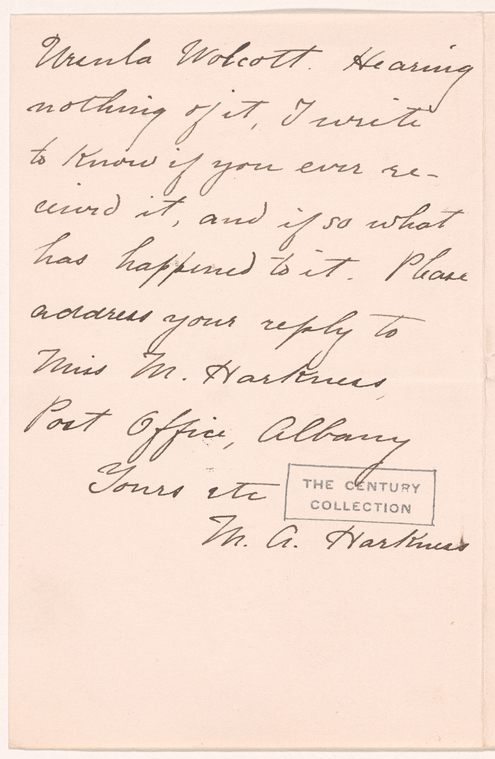 Ursula Wolcott. Hearing
nothing of it, I write
to know if you ever re-
ceived it, and if so what
has happened to it. Please
address your reply to
Miss M. Harkness,
Post Office, Albany
Yours etc
THE CENTURY
COLLECTION
M. A. Harkness